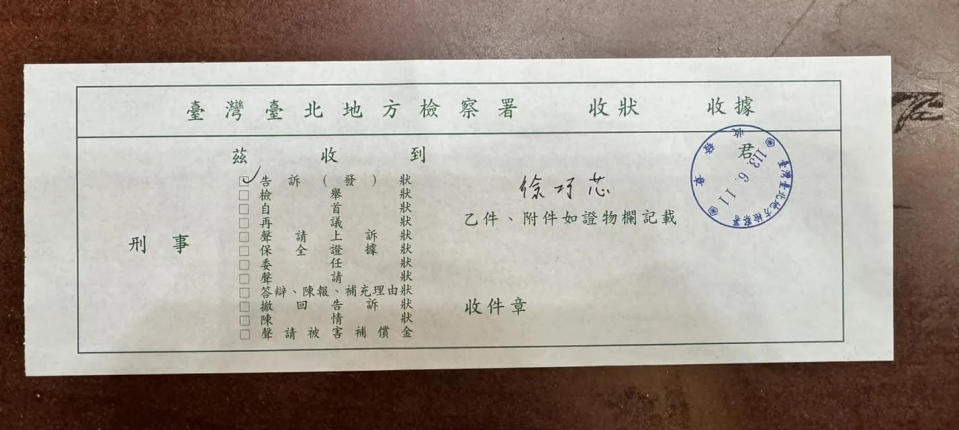 臺灣臺北地方檢察署 收狀 收據
茲收到
徐巧芯 君
☑告訴(發)狀
□檢舉狀
□自首狀
□再議狀
乙件、附件如證物欄記載
□聲請上訴狀
刑事
□保全證據狀
□委任狀
□聲請狀
□答辯、陳報、補充理由狀
□撤回告訴狀
收件章
□陳情狀
□聲請被害補償金
臺灣臺北地方檢察署
113.6.11
收發章